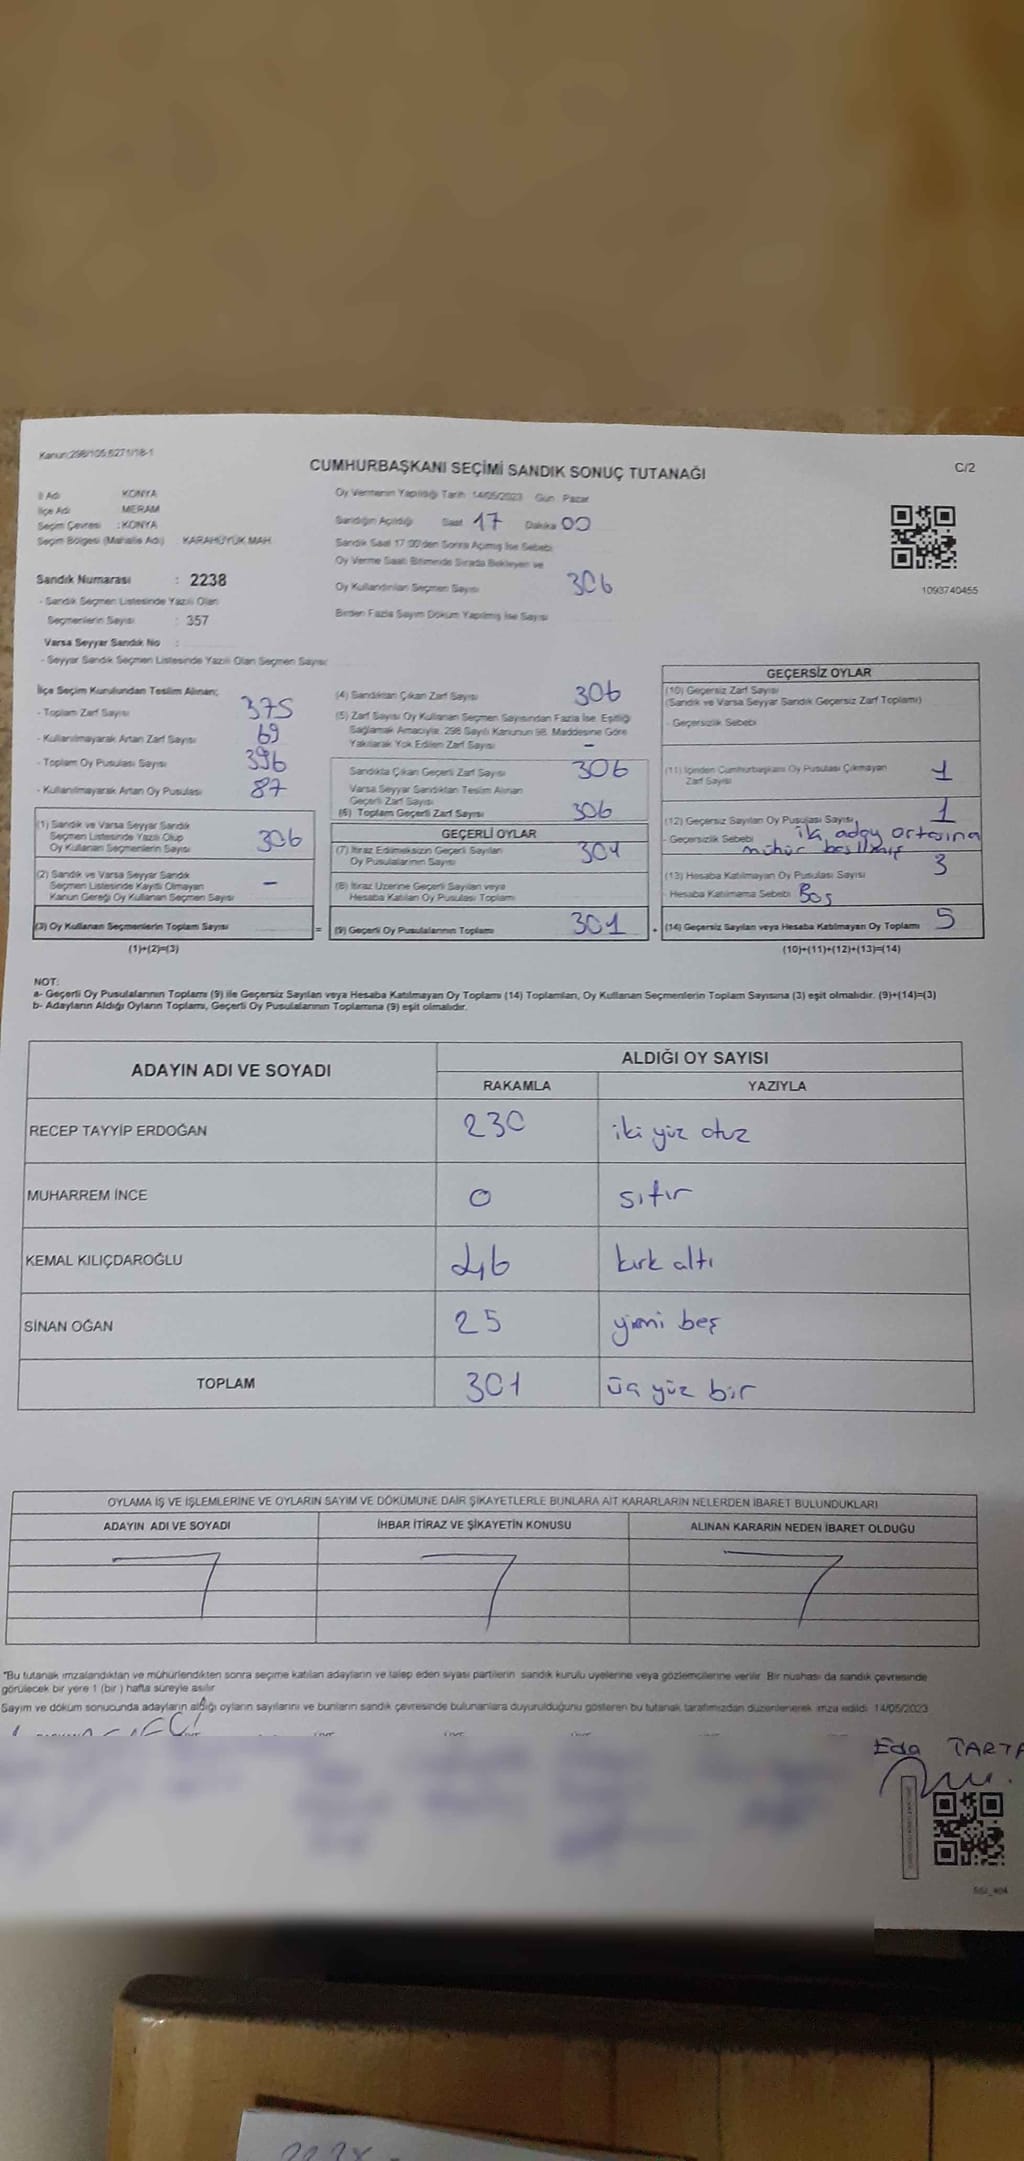 Kanun:298/105,6271/18-1
CUMHURBAŞKANI SEÇİMİ SANDIK SONUÇ TUTANAĞI
C/2
İl Adı KONYA
İlçe Adı MERAM
Seçim Çevresi : KONYA
Seçim Bölgesi (Mahalle Adı) KARAHÜYÜK MAH.
Sandık Numarası : 2238
- Sandık Seçmen Listesinde Yazılı Olan
Seçmenlerin Sayısı : 357
Varsa Seyyar Sandık No :
- Seyyar Sandık Seçmen Listesinde Yazılı Olan Seçmen Sayısı:
Oy Vermenin Yapıldığı Tarih 14/05/2023 Gün Pazar
Sandığın Açıldığı Saat 17 Dakika 00
Sandık Saat 17:00'den Sonra Açılmış İse Sebebi
Oy Verme Saati Bitiminde Sırada Bekleyen ve
Oy Kullandırılan Seçmen Sayısı 306
Birden Fazla Sayım Döküm Yapılmış İse Sayısı
1093740455
İlçe Seçim Kurulundan Teslim Alınan;
- Toplam Zarf Sayısı 375
- Kullanılmayarak Artan Zarf Sayısı 69
- Toplam Oy Pusulası Sayısı 396
- Kullanılmayarak Artan Oy Pusulası 87
(1) Sandık ve Varsa Seyyar Sandık
Seçmen Listesinde Yazılı Olup
Oy Kullanan Seçmenlerin Sayısı 306
(2) Sandık ve Varsa Seyyar Sandık
Seçmen Listesinde Kayıtlı Olmayan
Kanun Gereği Oy Kullanan Seçmen Sayısı -
(3) Oy Kullanan Seçmenlerin Toplam Sayısı =
(1)+(2)=(3)
(4) Sandıktan Çıkan Zarf Sayısı 306
(5) Zarf Sayısı Oy Kullanan Seçmen Sayısından Fazla İse, Eşitliği
Sağlamak Amacıyla, 298 Sayılı Kanunun 98. Maddesine Göre
Yakılarak Yok Edilen Zarf Sayısı -
Sandıkta Çıkan Geçerli Zarf Sayısı 306
Varsa Seyyar Sandıktan Teslim Alınan
Geçerli Zarf Sayısı
(6) Toplam Geçerli Zarf Sayısı 306
GEÇERLİ OYLAR
(7) İtiraz Edilmeksizin Geçerli Sayılan
Oy Pusulalarının Sayısı 301
(8) İtiraz Üzerine Geçerli Sayılan veya
Hesaba Katılan Oy Pusulası Toplamı
(9) Geçerli Oy Pusulalarının Toplamı 301 +
GEÇERSİZ OYLAR
(10) Geçersiz Zarf Sayısı
(Sandık ve Varsa Seyyar Sandık Geçersiz Zarf Toplamı)
- Geçersizlik Sebebi
(11) İçinden Cumhurbaşkanı Oy Pusulası Çıkmayan
Zarf Sayısı 1
(12) Geçersiz Sayılan Oy Pusulası Sayısı 1
- Geçersizlik Sebebi iki aday ortasına
mühür basılmış
(13) Hesaba Katılmayan Oy Pusulası Sayısı 3
- Hesaba Katılmama Sebebi Boş
(14) Geçersiz Sayılan veya Hesaba Katılmayan Oy Toplamı 5
(10)+(11)+(12)+(13)=(14)
NOT:
a- Geçerli Oy Pusulalarının Toplamı (9) ile Geçersiz Sayılan veya Hesaba Katılmayan Oy Toplamı (14) Toplamları, Oy Kullanan Seçmenlerin Toplam Sayısına (3) eşit olmalıdır. (9)+(14)=(3)
b- Adayların Aldığı Oyların Toplamı, Geçerli Oy Pusulalarının Toplamına (9) eşit olmalıdır.
ADAYIN ADI VE SOYADI
ALDIĞI OY SAYISI
RAKAMLA YAZIYLA
RECEP TAYYİP ERDOĞAN 230 iki yüz otuz
MUHARREM İNCE 0 sıfır
KEMAL KILIÇDAROĞLU 46 kırk altı
SİNAN OĞAN 25 yirmi beş
TOPLAM 301 üç yüz bir
OYLAMA İŞ VE İŞLEMLERİNE VE OYLARIN SAYIM VE DÖKÜMÜNE DAİR ŞİKAYETLERLE BUNLARA AİT KARARLARIN NELERDEN İBARET BULUNDUKLARI
ADAYIN ADI VE SOYADI İHBAR İTİRAZ VE ŞİKAYETİN KONUSU ALINAN KARARIN NEDEN İBARET OLDUĞU
*Bu tutanak imzalandıktan ve mühürlendikten sonra seçime katılan adayların ve talep eden siyasi partilerin sandık kurulu üyelerine veya gözlemcilerine verilir. Bir nüshası da sandık çevresinde
görülecek bir yere 1 (bir ) hafta süreyle asılır
Sayım ve döküm sonucunda adayların aldığı oyların sayılarını ve bunların sandık çevresinde bulunanlara duyurulduğunu gösteren bu tutanak tarafımızdan düzenlenerek imza edildi. 14/05/2023
Eda TARTA